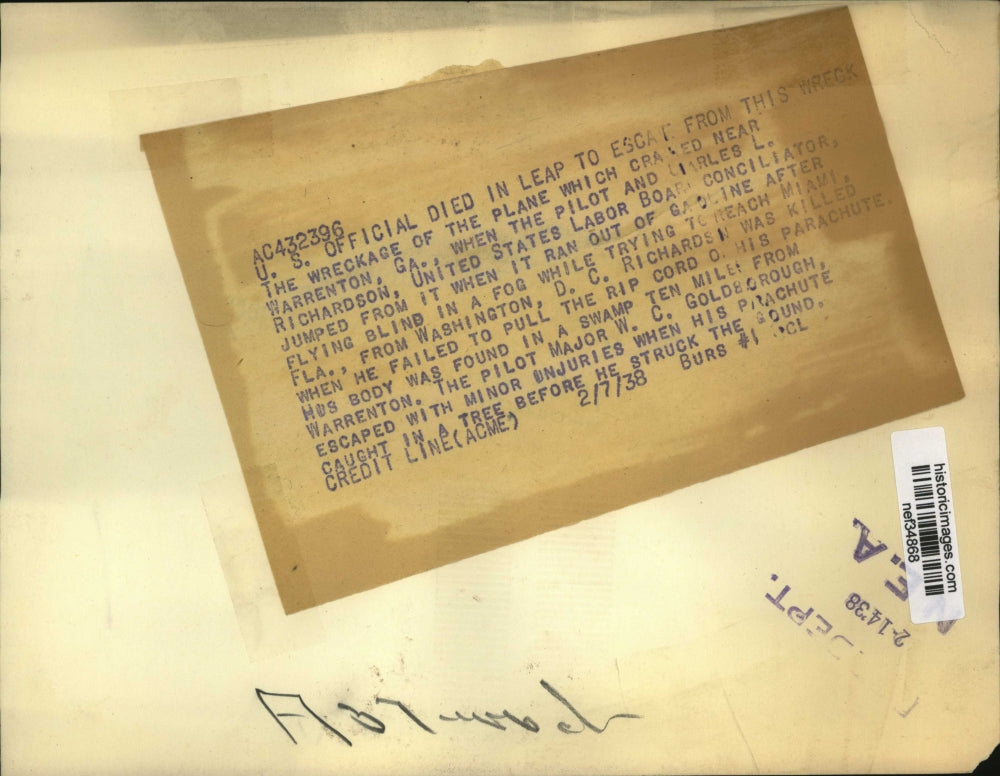 AC432396
U. S. OFFICIAL DIED IN LEAP TO ESCA FROM THIS WRECK
THE WRECKAGE OF THE PLANE WHICH CRA ED NEAR
WARRENTON, GA., WHEN THE PILOT AND C ARLES L.
RICHARDSON, UNITED STATES LABOR BOAR CONCILIATOR,
JUMPED FROM IT WHEN IT RAN OUT OF GAO INE AFTER
FLYING BLIND IN A FOG WHILE TRYING TO REACH MIAMI,
FLA., FROM WASHINGTON, D. C. RICHARDS N WAS KILLED
WHEN HE FAILED TO PULL THE RIP CORD O HIS PARACHUTE.
HUS BODY WAS FOUND IN A SWAMP TEN MILES FROM
WARRENTON. THE PILOT MAJOR W. C. GOLDBOROUGH,
ESCAPED WITH MINOR UNJURIES WHEN HIS PARACHUTE
CAUGHT IN A TREE BEFORE HE STRUCK THE G OUND.
CREDIT LINE(ACME) 2/7/38 BURS #1 CL
historicimages.com
nef34868
E.A.
2-14'38
DEPT.